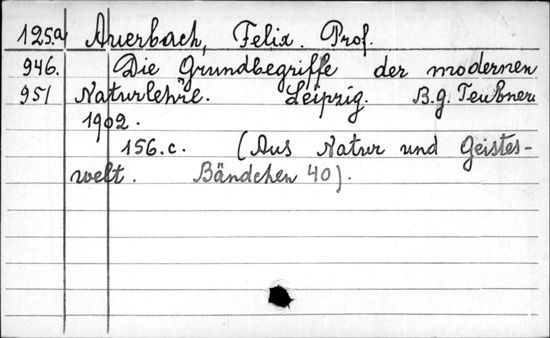 125a Auerbach, Felix. Prof.
946. Die Grundbegriffe der modernen
951 Naturlehre. Leipzig. B.g. Teubner
1902.
156.c. (Aus Natur und Geistes-
welt. Bändchen 40).